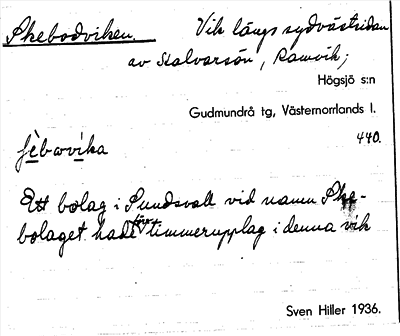 Skebodviken. Vik längs sydvästsidan
av Kalvarsön, Ramvik;
Högsjö s:n
Gudmundrå tg, Västernorrlands l.
440.
ʃèbωvika
Ett bolag i Sundsvall vid namn Ske-
bolaget hade förr timmerupplag i denna vik
Sven Hiller 1936.